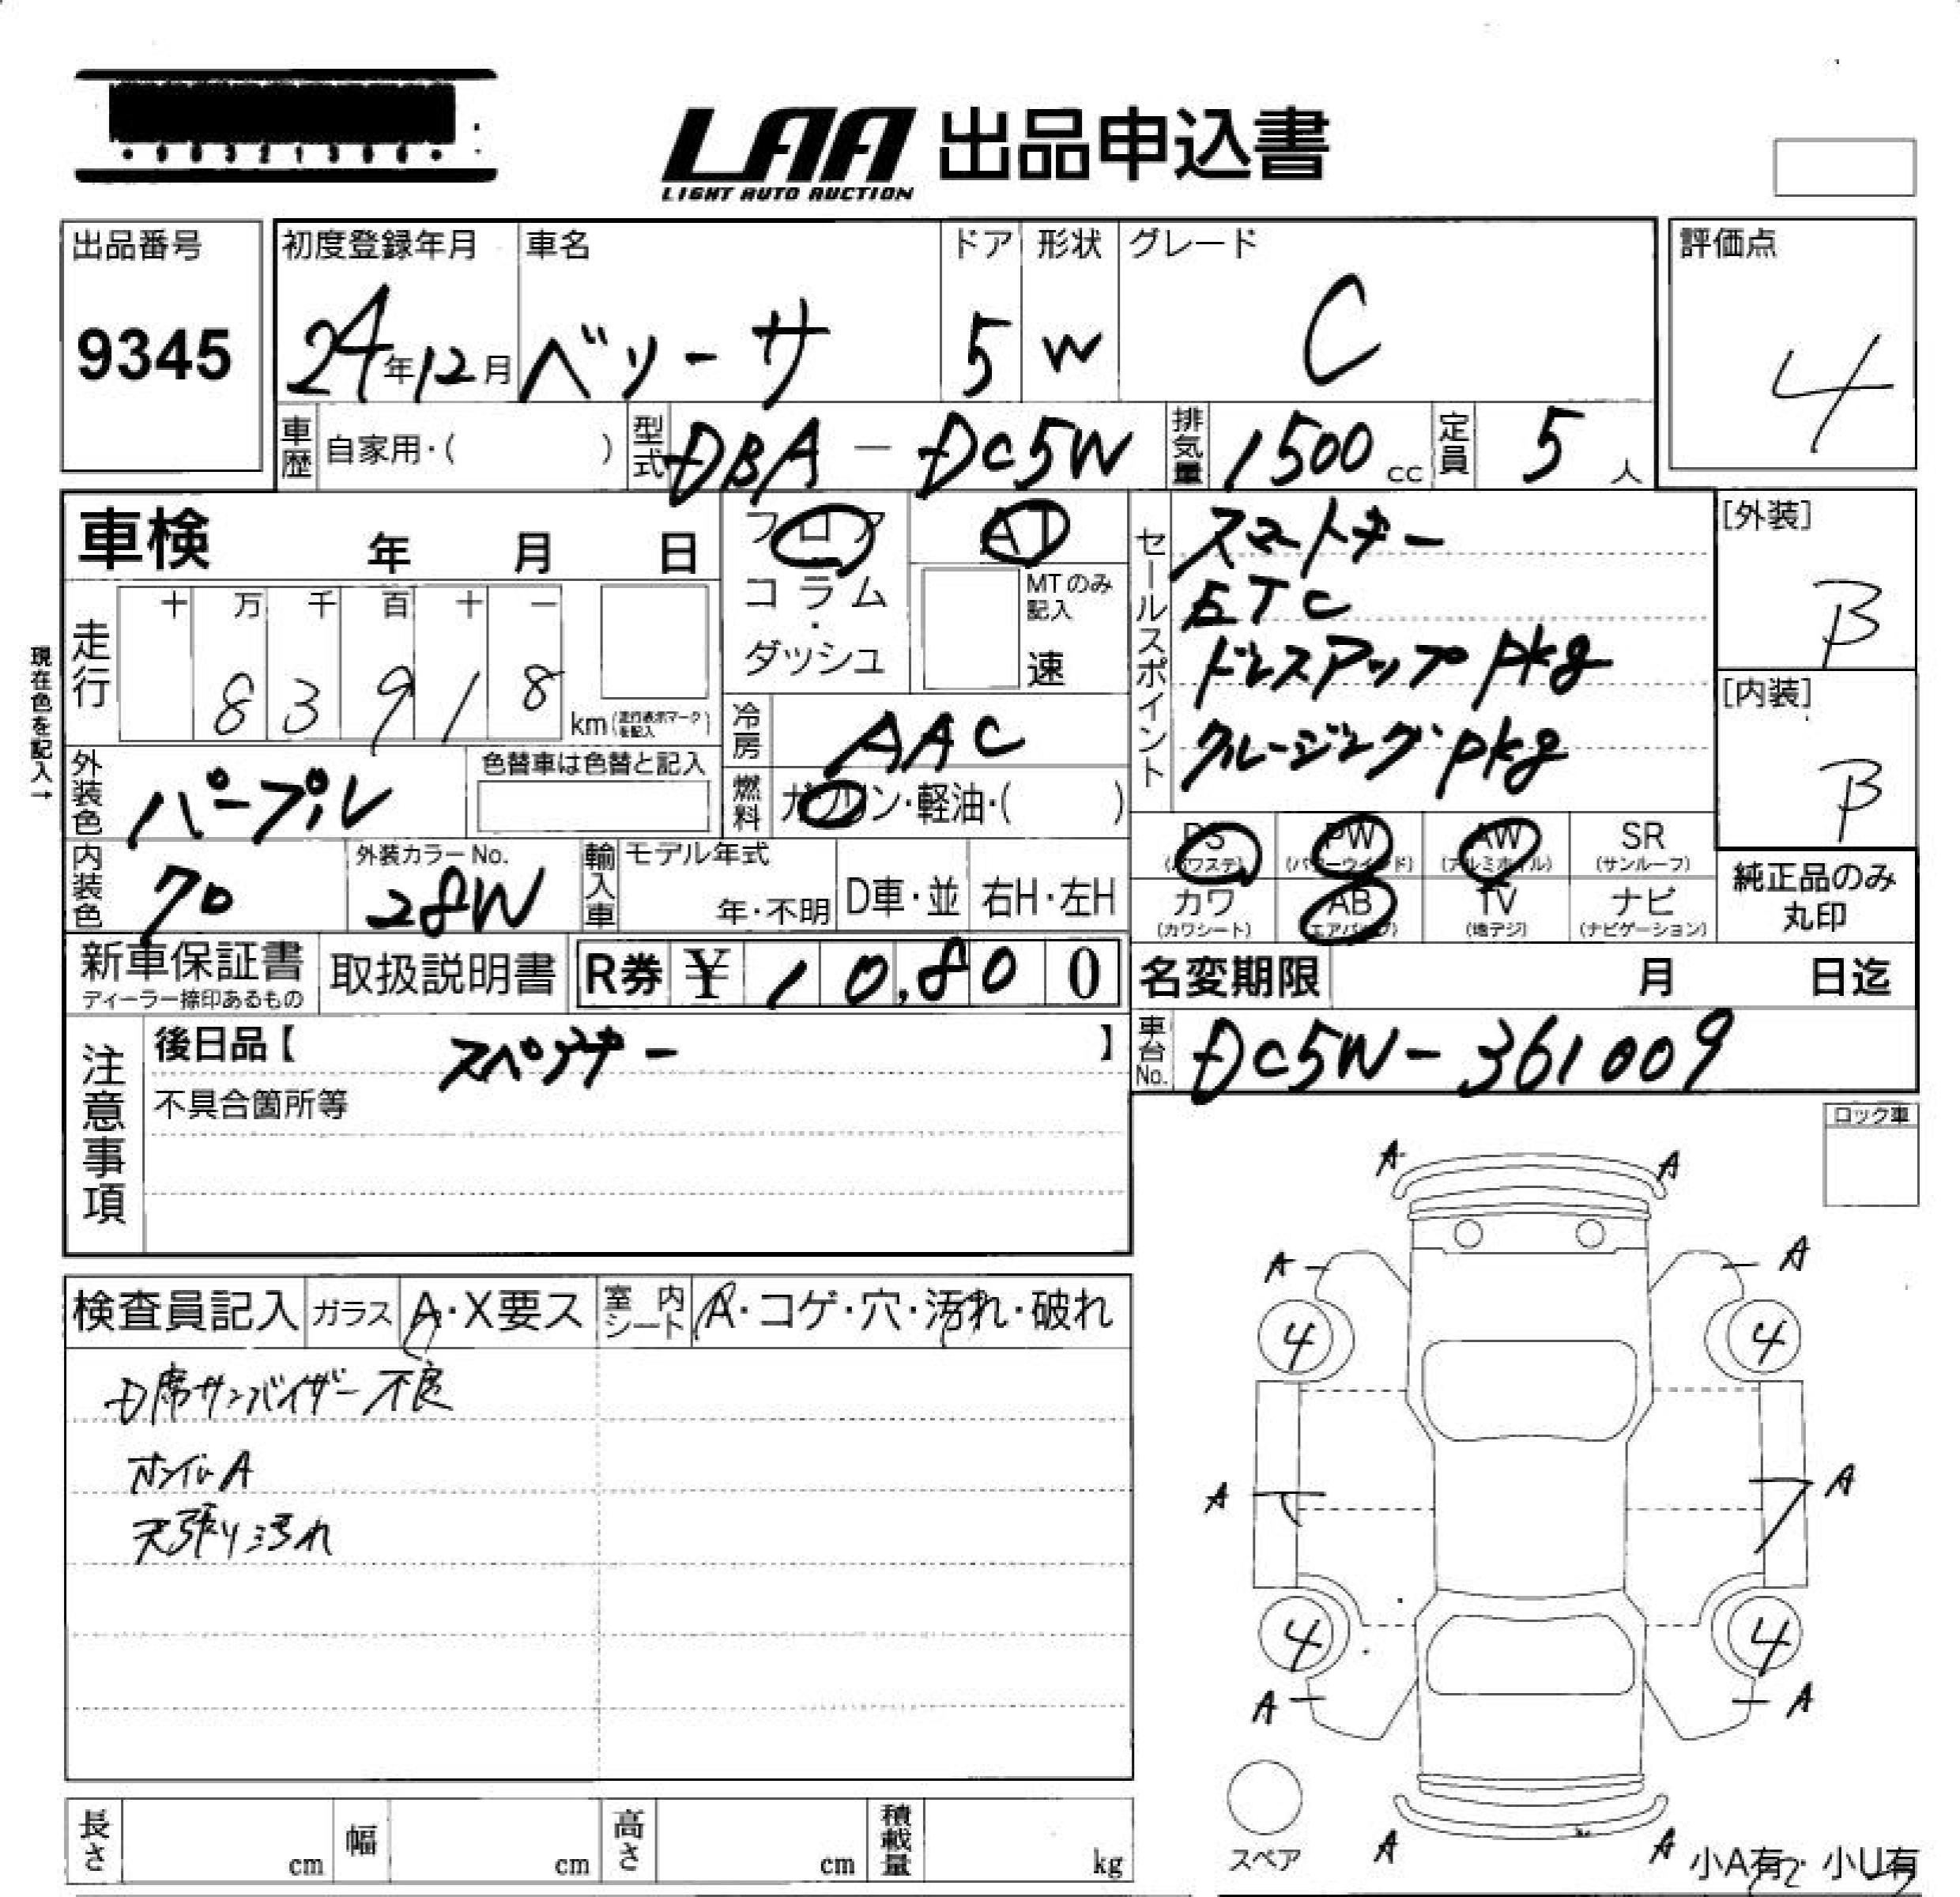 LAA 出品申込書
LIGHT AUTO AUCTION
出品番号
9345
初度登録年月
24年12月
車名
ベリーサ
ドア
5
形状
W
グレード
C
評価点
4
車歴 自家用・( )
型式 DBA-DC5W
排気量 1500 cc
定員 5 人
車検 年 月 日
フロア
コラム・ダッシュ
AT
MTのみ記入
速
セールスポイント
スマートキー
ETC
ドレスアップpkg
クルージングpkg
[外装]
B
[内装]
B
現在色を記入→
走行 十 万 千 百 十 一
8 3 9 1 8 km (走行表示マークを記入)
冷房 AAC
燃料 ガソリン・軽油・( )
外装色 パープル
色替車は色替と記入
内装色 70
外装カラーNo.
28W
輸入車 モデル年式
年・不明
D車・並 右H・左H
PS (パワステ)
PW (パワーウインド)
AW (アルミホイル)
SR (サンルーフ)
カワ (カワシート)
AB (エアバッグ)
TV (地デジ)
ナビ (ナビゲーション)
純正品のみ
丸印
新車保証書
ディーラー捺印あるもの
取扱説明書
R券 ¥ 10,800
名変期限 月 日迄
車台No. DC5W-361009
注意事項
後日品【 スペアキー 】
不具合箇所等
ロック車
検査員記入
ガラス A・X要ス
室内シート A・コゲ・穴・汚れ・破れ
D席サンバイザー不良
ホイルA
天張り汚れ
A A
A A
4 4
A A
4 4
A A
スペア
A A
小A有・小U有
長さ cm
幅 cm
高さ cm
積載量 kg